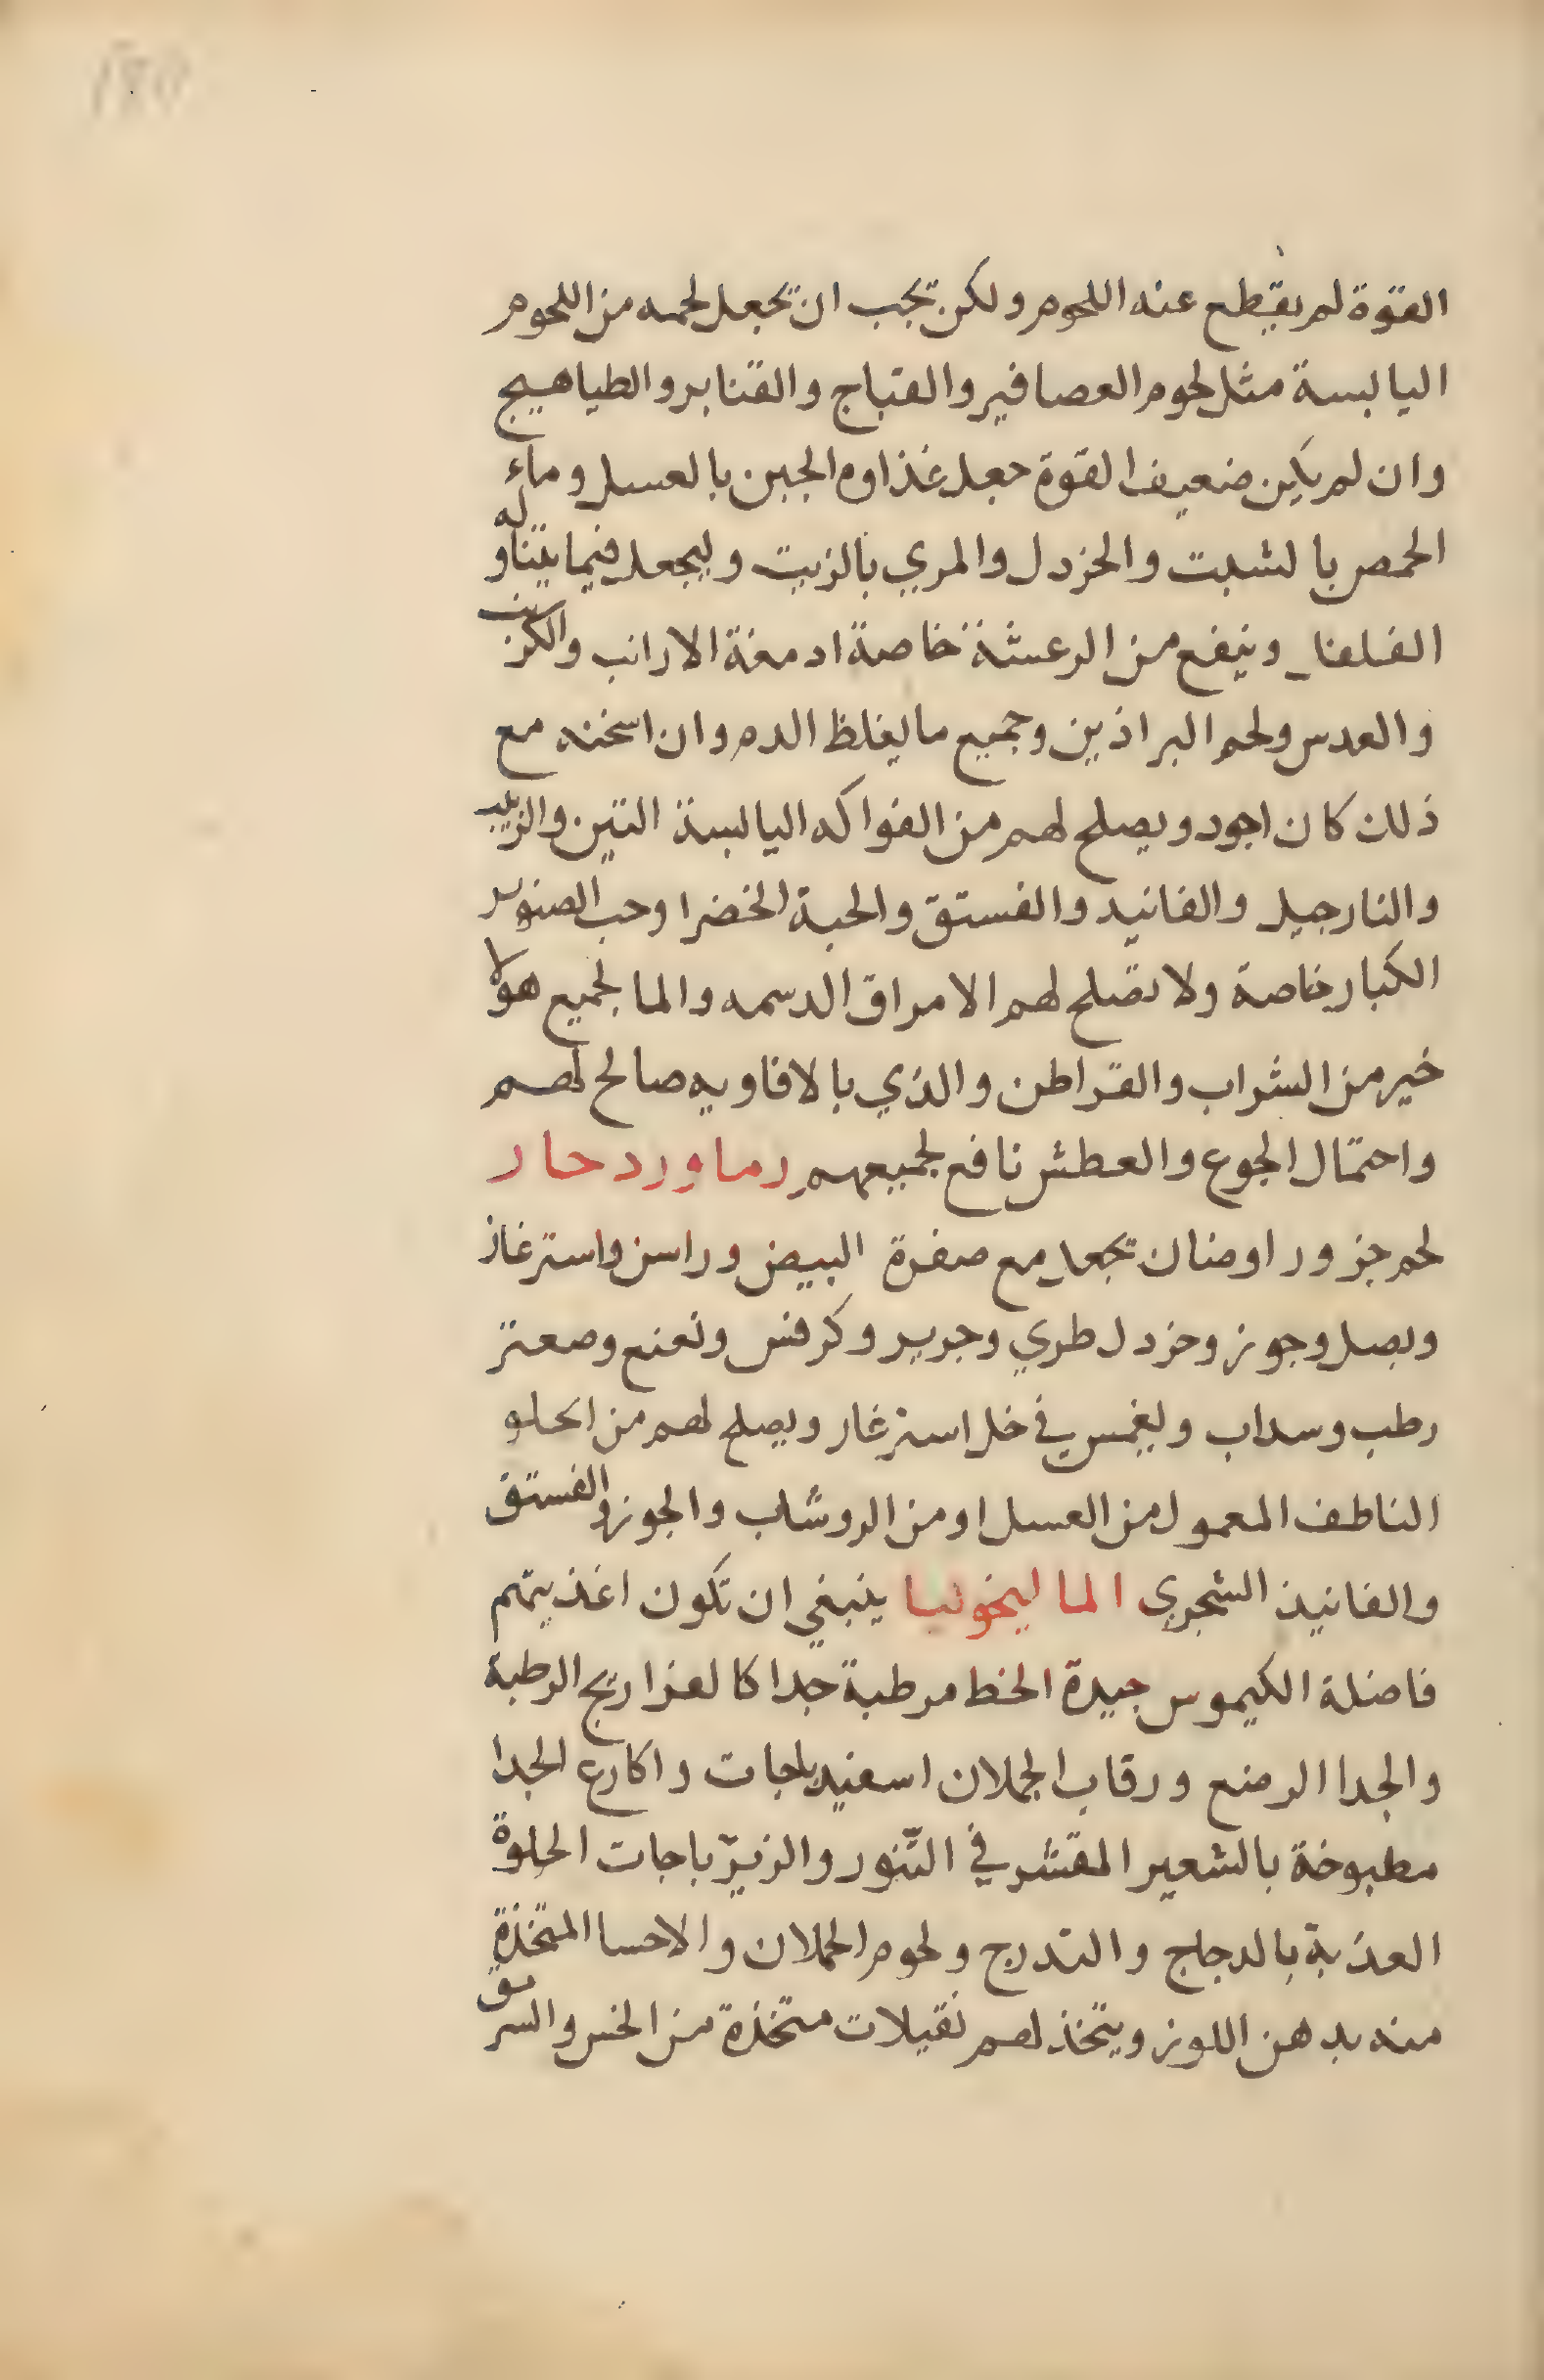 القوة لم يقطع عنه اللحوم ولكن تجب ان تجعل لحمه من اللحوم
اليابسة مثل لحوم العصافير والقباج والقنابر والطياهيج
وان لم يكن ضعيف القوة جعل غذاوه الجبن بالعسل وماء
الحمص بالشبت والخردل والمري بالزيت وليجعل فيما يتناوله
الفلفل وينفع من الرعشة خاصة ادمغة الارانب والكرنب
والعدس ولحم البراذين وجميع ما يغلظ الدم وان اسخنه مع
ذلك كان اجود ويصلح لهم من الفواكه اليابسة التين والزبيب
والنارجيل والفانيد والفستق والحبة الخضرا وحب الصنوبر
الكبار خاصة ولا تصلح لهم الامراق الدسمه والما لجميع هولا
خير من الشراب والقراطن والذي بالافاويه صالح لهم
واحتمال الجوع والعطش نافع لجميعهم رماورد حار
لحم جزور اوضان تجعل مع صفرة البيض وراسن واسترغاز
وبصل وجوز وخردل طري وجرير وكرفس ونعنع وصعتر
رطب وسداب ويغمس في خل استرغار ويصلح لهم من الحلو
الناطف المعمول من العسل اومن الدوشاب والجوز والفستق
والفانيذ الشجري الماليخوليا ينبغي ان تكون اغذيتهم
فاضلة الكيموس جيدة الخلط مرطبة جدا كالفراريج الرطبة
والجدا الرضع ورقاب الحملان اسفيدباجات واكارع الجدا
مطبوخة بالشعير المقشر في التنور والزيرباجات الحلوة
العذبة بالدجاج والتدرج ولحوم الحملان والاحسا المتخذة
منه بدهن اللوز ويتخذ لهم نقيلات متخذة من الخس والسرمق